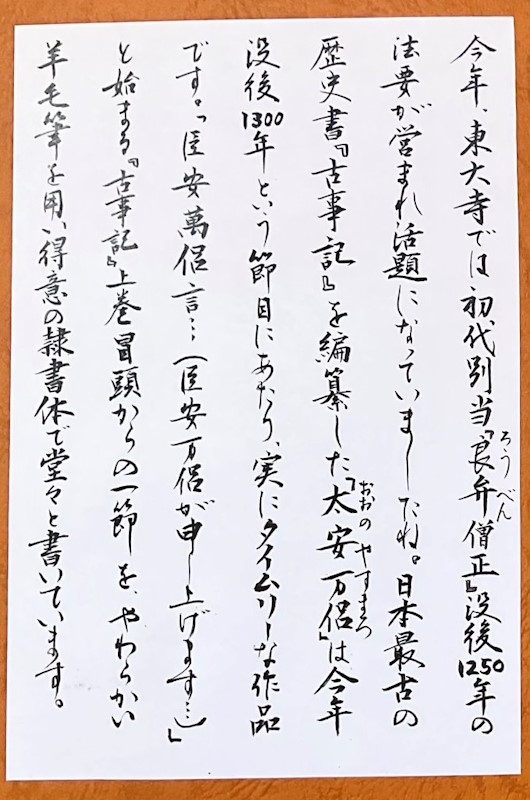 今年、東大寺では初代別当『良弁僧正』没後1250年の
ろうべん
法要が営まれ話題になっていましたね。日本最古の
歴史書『古事記』を編纂した『太安万侶』は今年
おおの やすまろ
没後1300年という節目にあたり、実にタイムリーな作品
です。「臣安萬侶言…（臣安万侶が申し上げます…）」
と始まる『古事記』上巻冒頭からの一節を、やわらかい
羊毛筆を用い得意の隷書体で堂々と書いています。